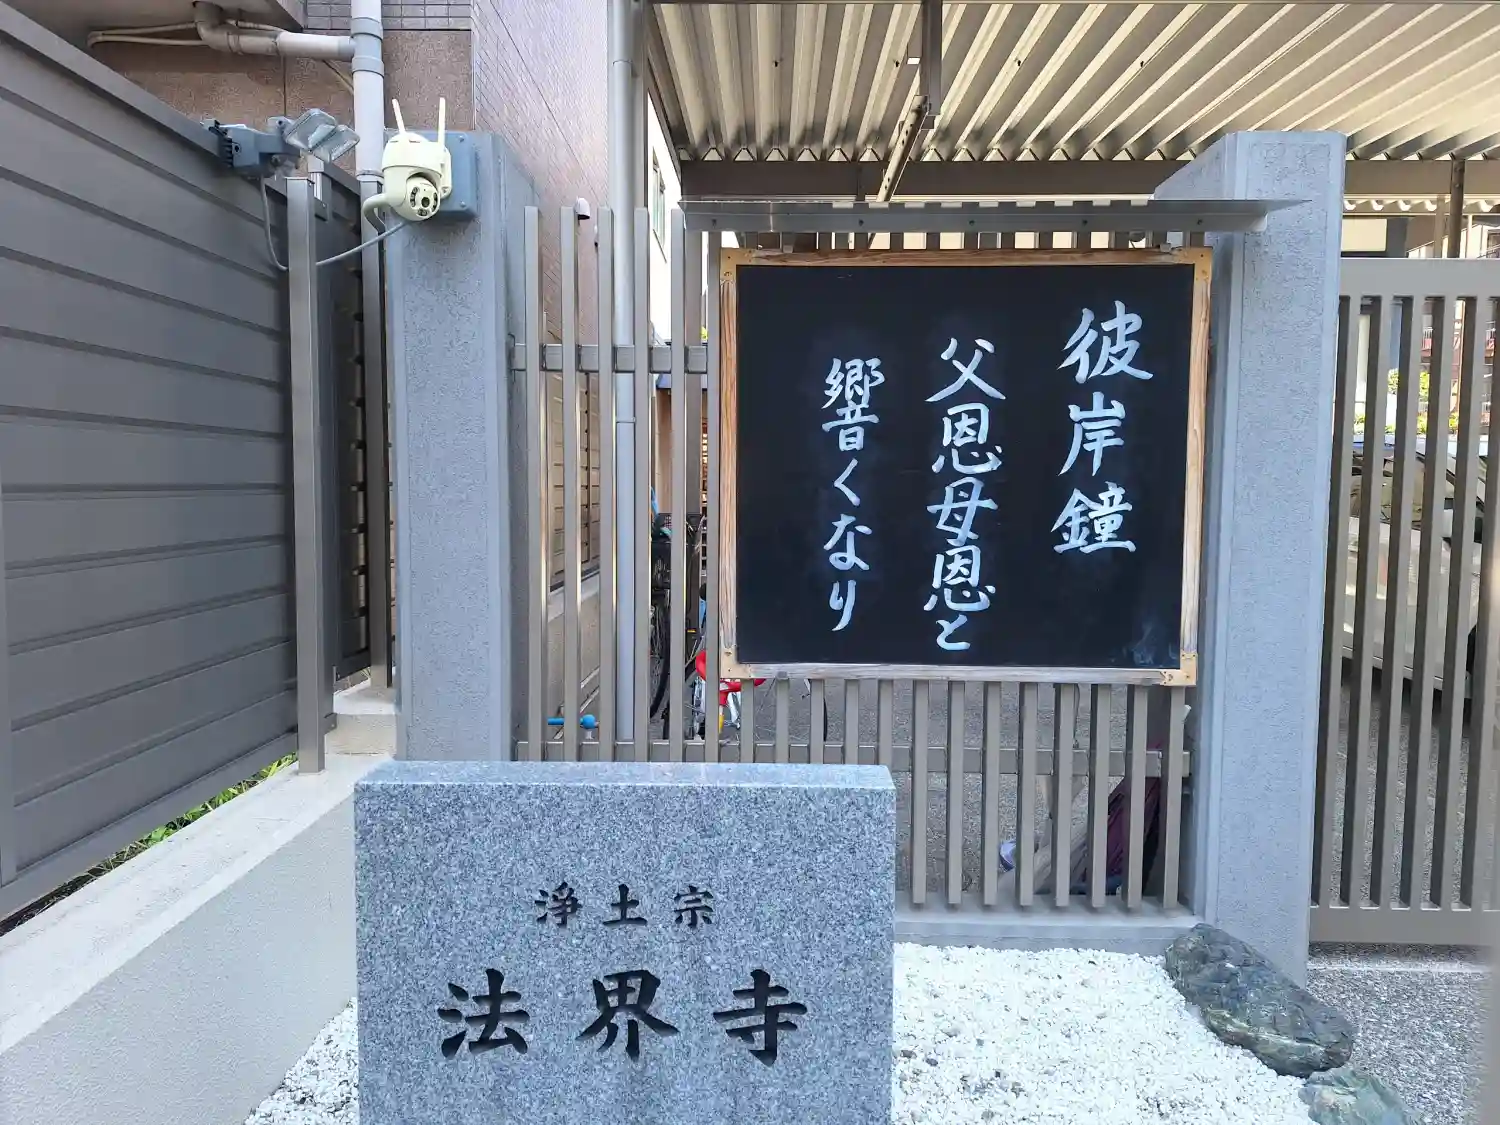 彼岸鐘
父恩母恩と
響くなり
浄土宗
法界寺